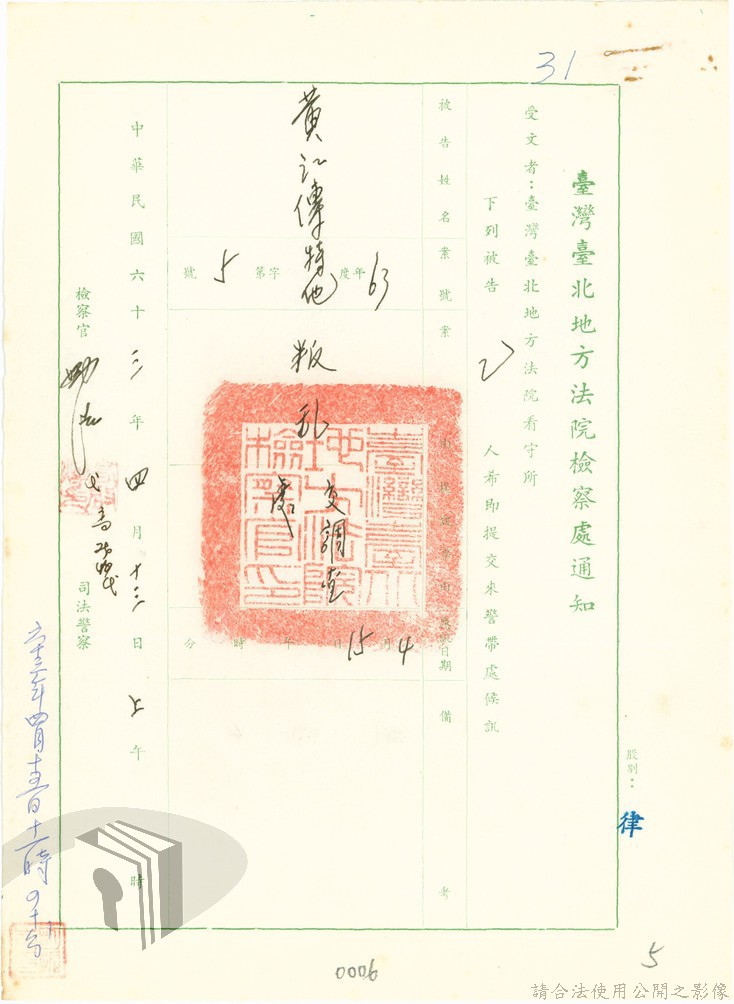 31
臺灣臺北地方法院檢察處通知
受文者：臺灣臺北地方法院看守所
下列被告 乙 人希即提交來警帶處候訊
被告姓名 案號 案
備考
63 年度 字第 5 號
4 月 15 日 午 時 分
交調查處
叛乱
臺灣臺北地方法院檢察官印
中華民國六十三年四月十三日上午 時
檢察官
司法警察
六十三年四月十五日十一時四十分
股別：律
5
0006
請合法使用公開之影像